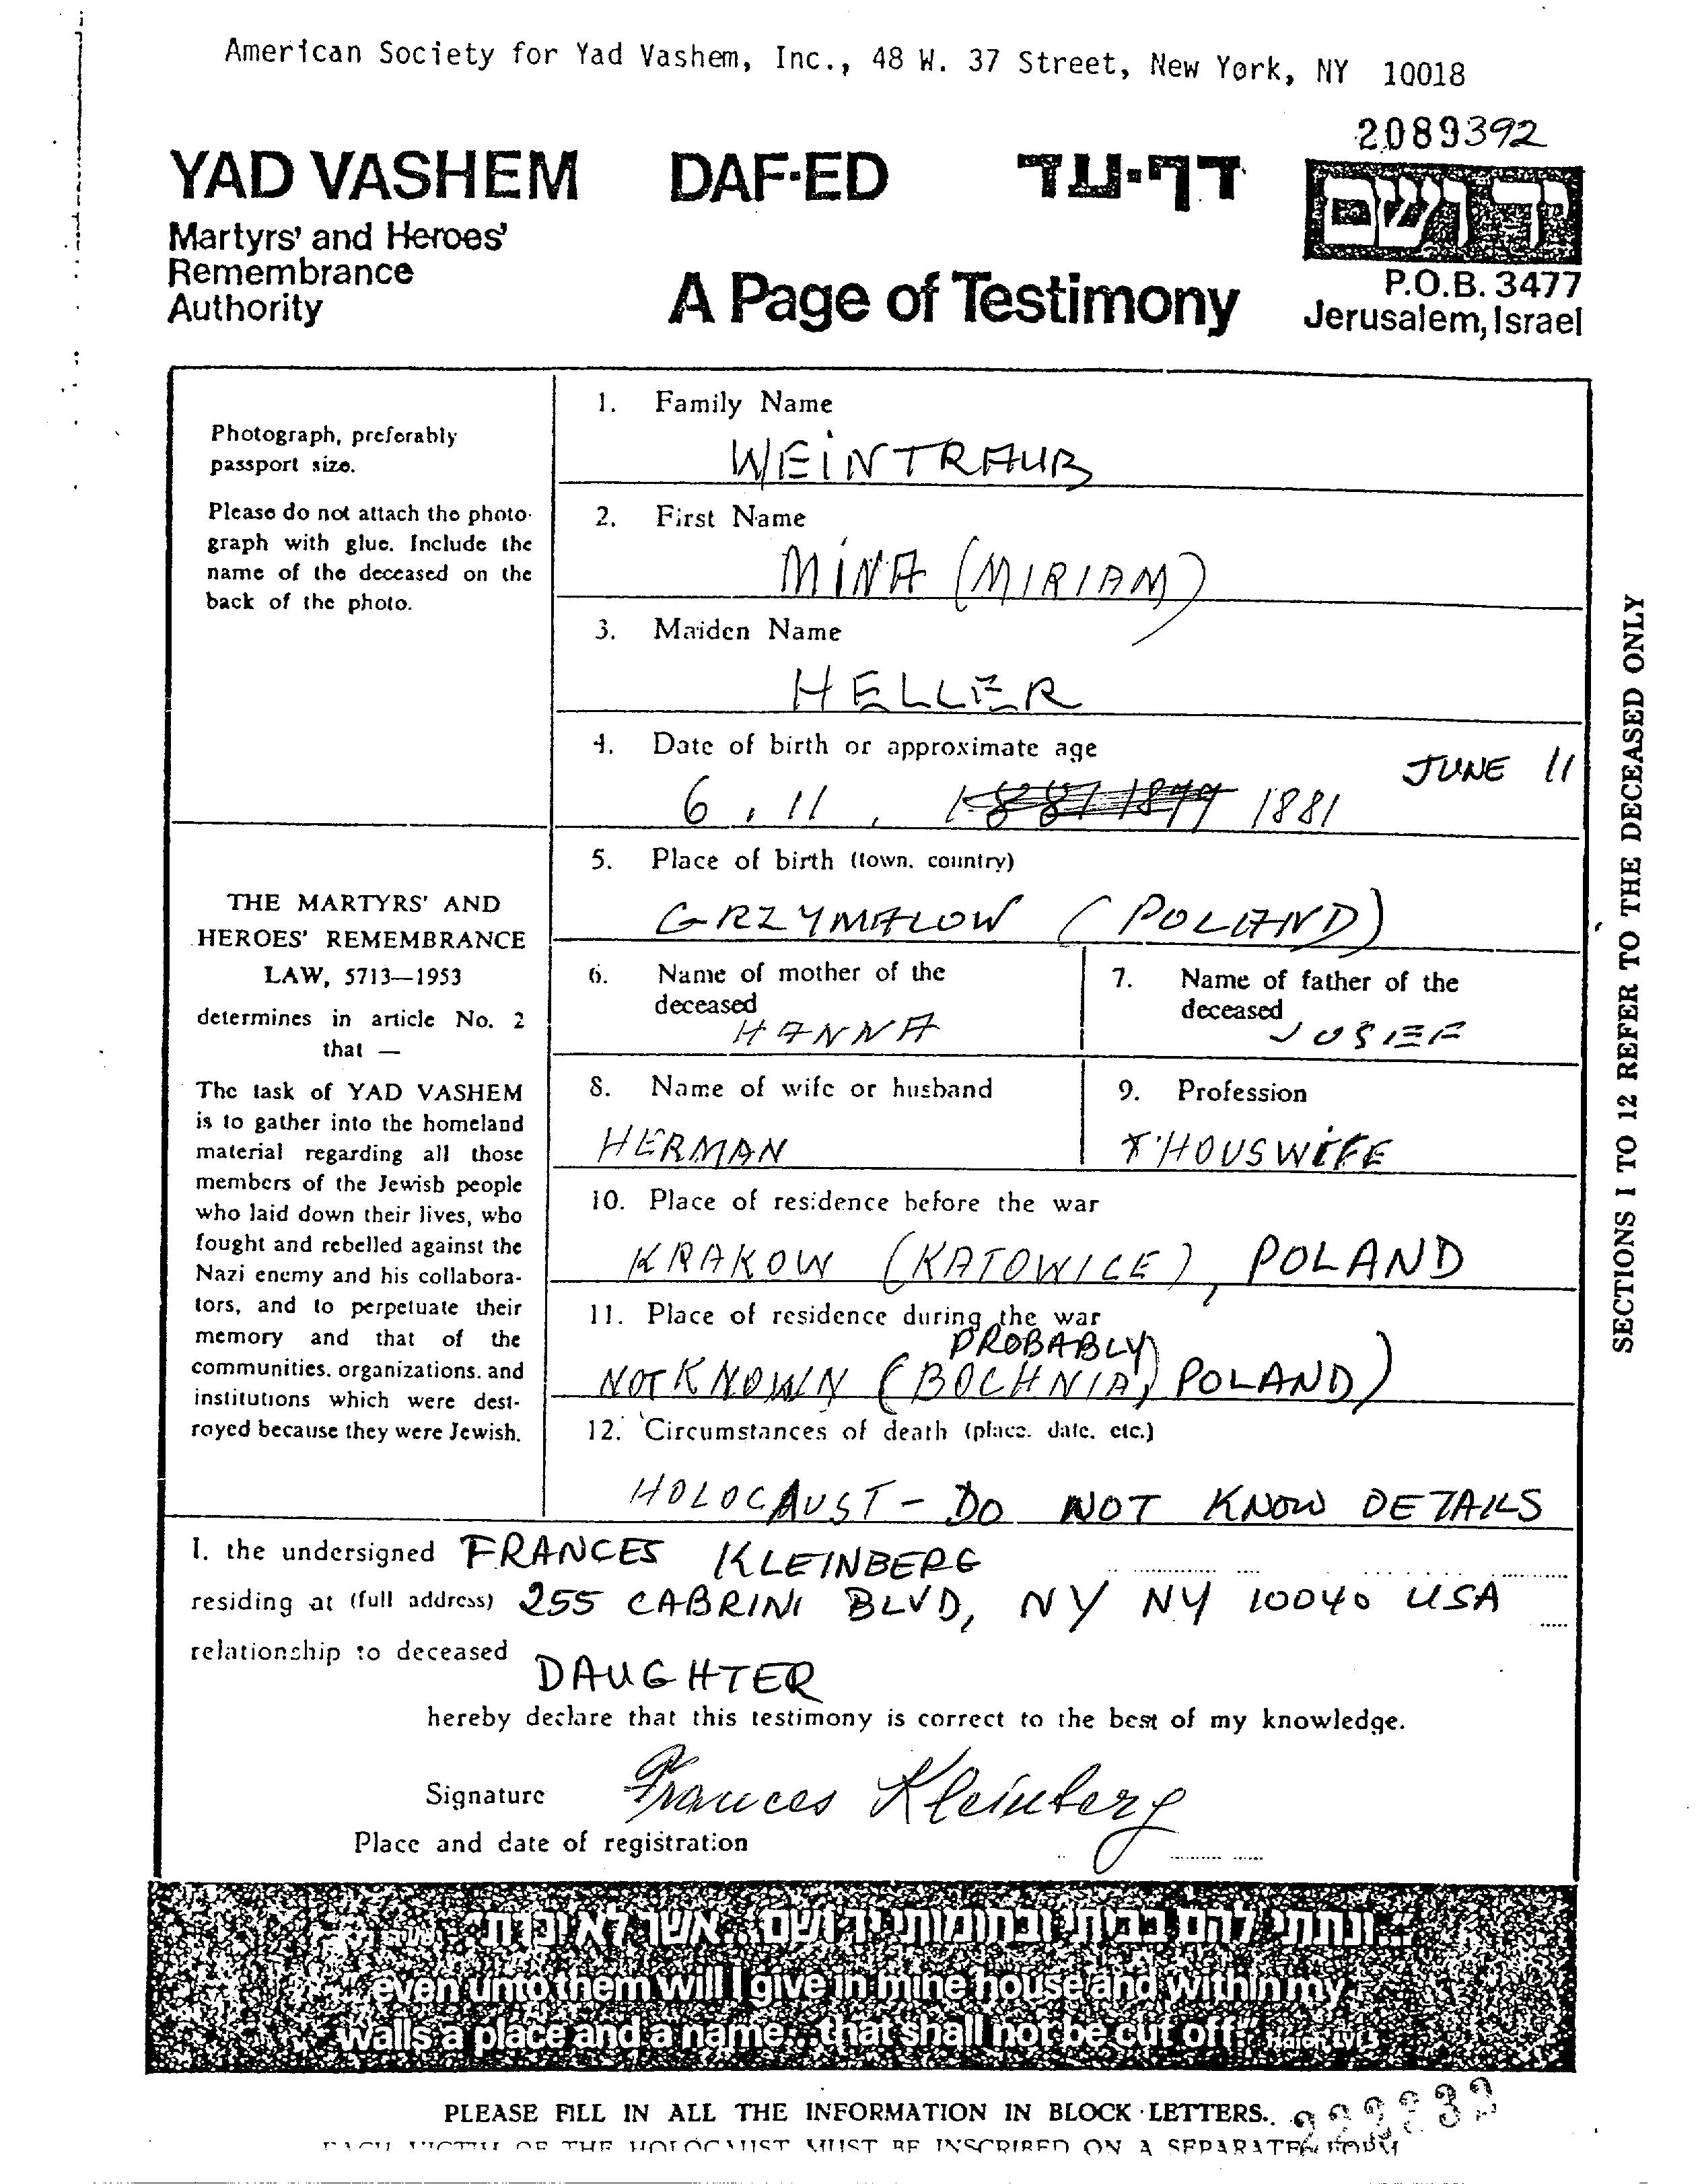 American Society for Yad Vashem, Inc., 48 W. 37 Street, New York, NY 10018
2089392
YAD VASHEM DAF-ED דף-עד
יד ושם
Martyrs' and Heroes'
Remembrance
Authority
A Page of Testimony
P.O.B. 3477
Jerusalem, Israel
Photograph, preferably
passport size.
Please do not attach the photo-
graph with glue. Include the
name of the deceased on the
back of the photo.
1. Family Name
WEINTRAUB
2. First Name
MINA (MIRIAM)
3. Maiden Name
HELLER
4. Date of birth or approximate age
JUNE 11
6. 11, 1881 1879 1881
5. Place of birth (town, country)
GRZYMALOW (POLAND)
6. Name of mother of the
deceased
HANNA
7. Name of father of the
deceased
JOSIEF
8. Name of wife or husband
HERMAN
9. Profession
HOUSWIFE
10. Place of residence before the war
KRAKOW (KATOWICE), POLAND
11. Place of residence during the war
PROBABLY
NOT KNOWN (BOCHNIA, POLAND)
12. Circumstances of death (place, date, etc.)
HOLOCAUST - DO NOT KNOW DETAILS
THE MARTYRS' AND
HEROES' REMEMBRANCE
LAW, 5713—1953
determines in article No. 2
that —
The task of YAD VASHEM
is to gather into the homeland
material regarding all those
members of the Jewish people
who laid down their lives, who
fought and rebelled against the
Nazi enemy and his collabora-
tors, and to perpetuate their
memory and that of the
communities, organizations, and
institutions which were dest-
royed because they were Jewish.
SECTIONS 1 TO 12 REFER TO THE DECEASED ONLY
I, the undersigned FRANCES KLEINBERG
residing at (full address) 255 CABRINI BLVD, NY NY 10040 USA
relationship to deceased DAUGHTER
hereby declare that this testimony is correct to the best of my knowledge.
Signature Frances Kleinberg
Place and date of registration
"...ונתתי להם בביתי ובחומותי יד ושם... אשר לא יכרת"
"...even unto them will I give in mine house and within my
walls a place and a name...that shall not be cut off."
PLEASE FILL IN ALL THE INFORMATION IN BLOCK LETTERS.
EACH VICTIM OF THE HOLOCAUST MUST BE INSCRIBED ON A SEPARATE FORM